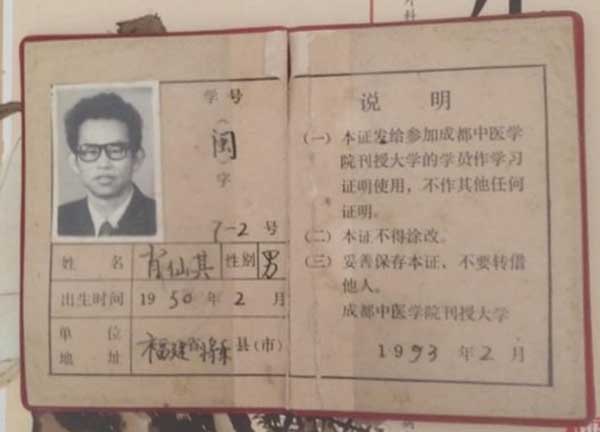 学号
闽
字
7-2 号
姓名 肖仙其 性别 男
出生时间 1950 年 2 月
单位 福建省将乐县(市)
地址
说明
(一) 本证发给参加成都中医学
院刊授大学的学员作学习
证明使用,不作其他任何
证明。
(二) 本证不得涂改。
(三) 妥善保存本证、不要转借
他人。
成都中医学院刊授大学
1993 年 2 月